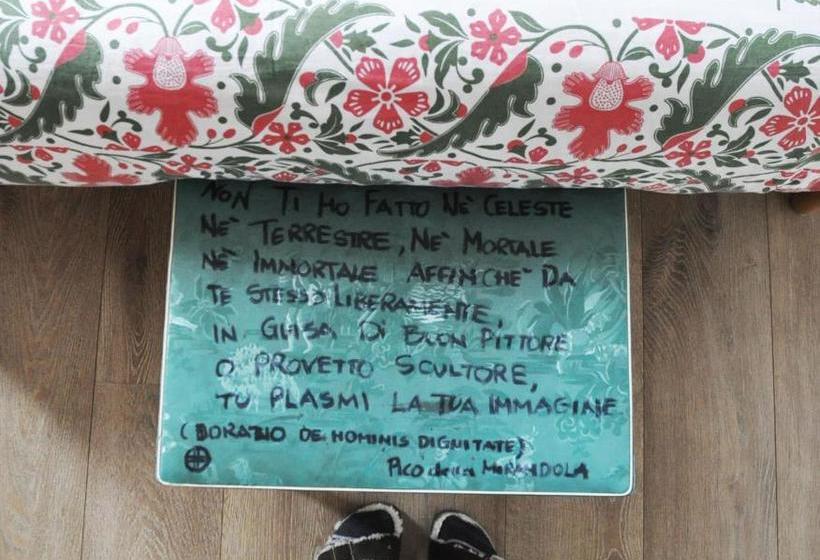 NON TI HO FATTO NE' CELESTE
NE' TERRESTRE, NE' MORTALE
NE' IMMORTALE AFFINCHE' DA
TE STESSO LIBERAMENTE,
IN GUISA DI BUON PITTORE
O PROVETTO SCULTORE,
TU PLASMI LA TUA IMMAGINE
( DORATIO DE HOMINIS DIGNITATE)
PICO della MIRANDOLA